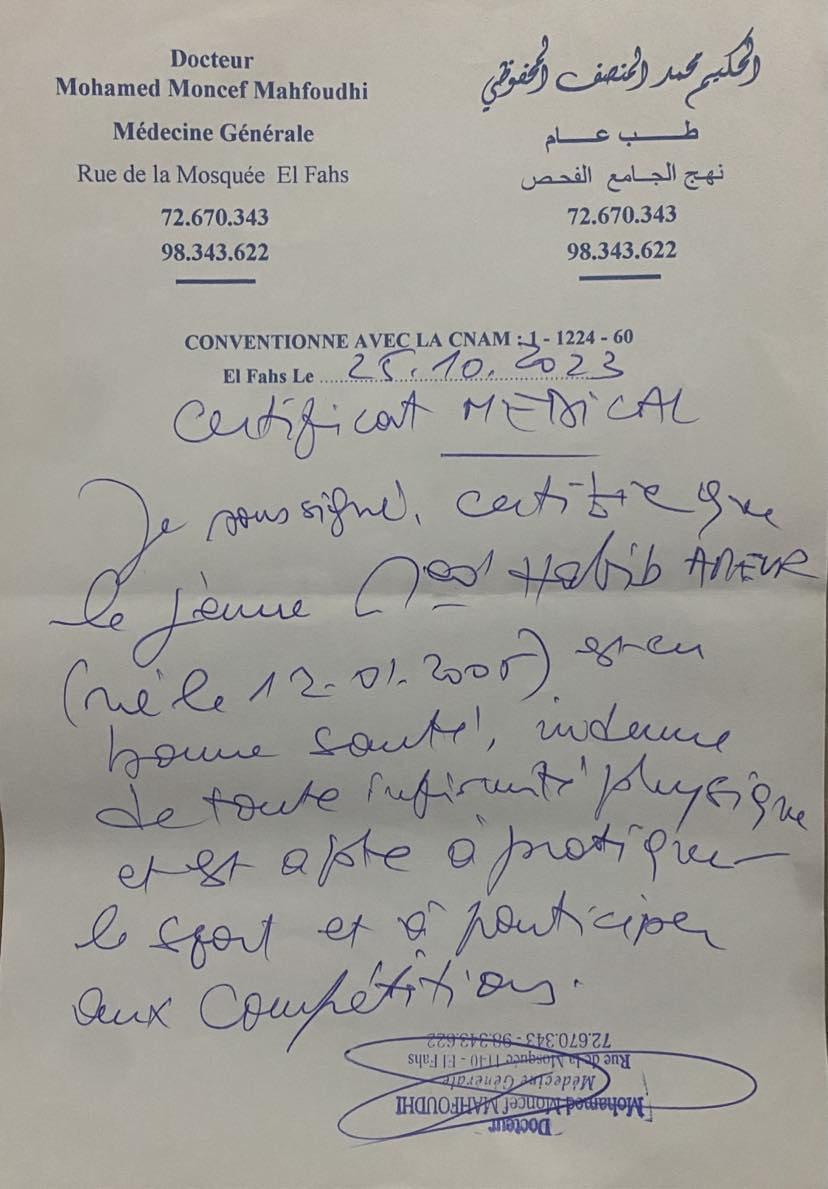 Docteur
Mohamed Moncef Mahfoudhi
Médecine Générale
Rue de la Mosquée El Fahs
72.670.343
98.343.622
الحكيم محمد المنصف المحفوظي
طب عام
نهج الجامع الفحص
72.670.343
98.343.622
CONVENTIONNE AVEC LA CNAM : 1 - 1224 - 60
El Fahs Le 25.10.2023
Certificat MEDICAL
Je soussigné, certifie que
le jeune Med Habib AMEUR
(né le 12.01.2005) est en
bonne santé, indemne
de toute infirmité physique
et est apte à pratiquer
le sport et à participer
aux Compétitions.
Docteur
Mohamed Moncef MAHFOUDHI
Médecine Générale
Rue de la Mosquée 1140 - El Fahs
72.670.343 - 98.343.622